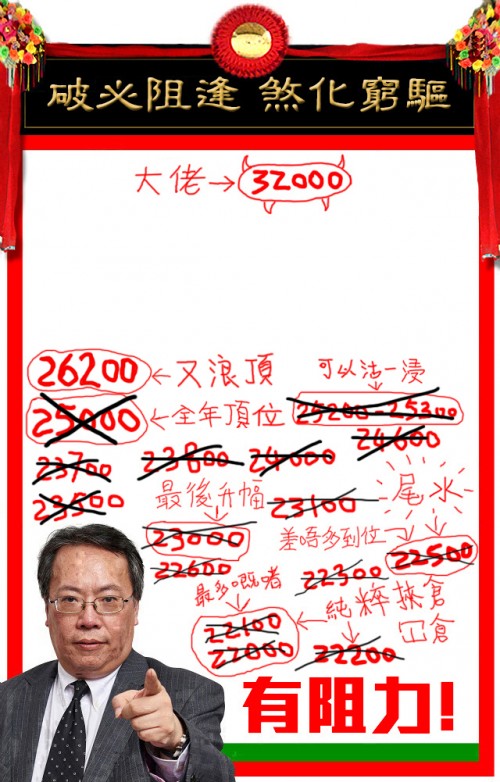 驅窮化煞 逢阻必破
大佬→32000
26200←又浪頂
可以沽一浸
25000←全年頂位
25200-25300
24600
23700
23800
24000
23500
最後升幅
23100
尾水
23000
差唔多到位
22500
22600
22300
最多嘅啫
純粹挾倉
冚倉
22100
22000
22200
有阻力!